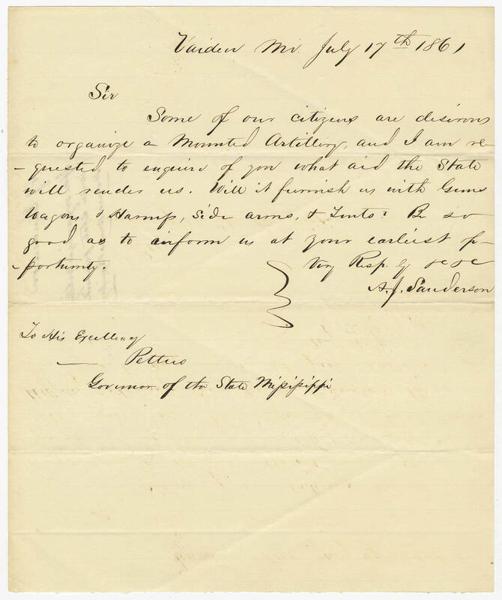 Vaiden Mi. July 17th 1861
Sir
Some of our citizens are desirous
to organize a Mounted Artillery, and I am re
-quested to enquire of you what aid the State
will render us. Will it furnish us with Guns
Wagons & Harness, Side arms, & Tents? Be so
good as to inform us at your earliest op
-portunity.
Very Resp. &c &c
A. J. Sanderson
To His Excellency
— Pettus
Governor of the State Mississippi